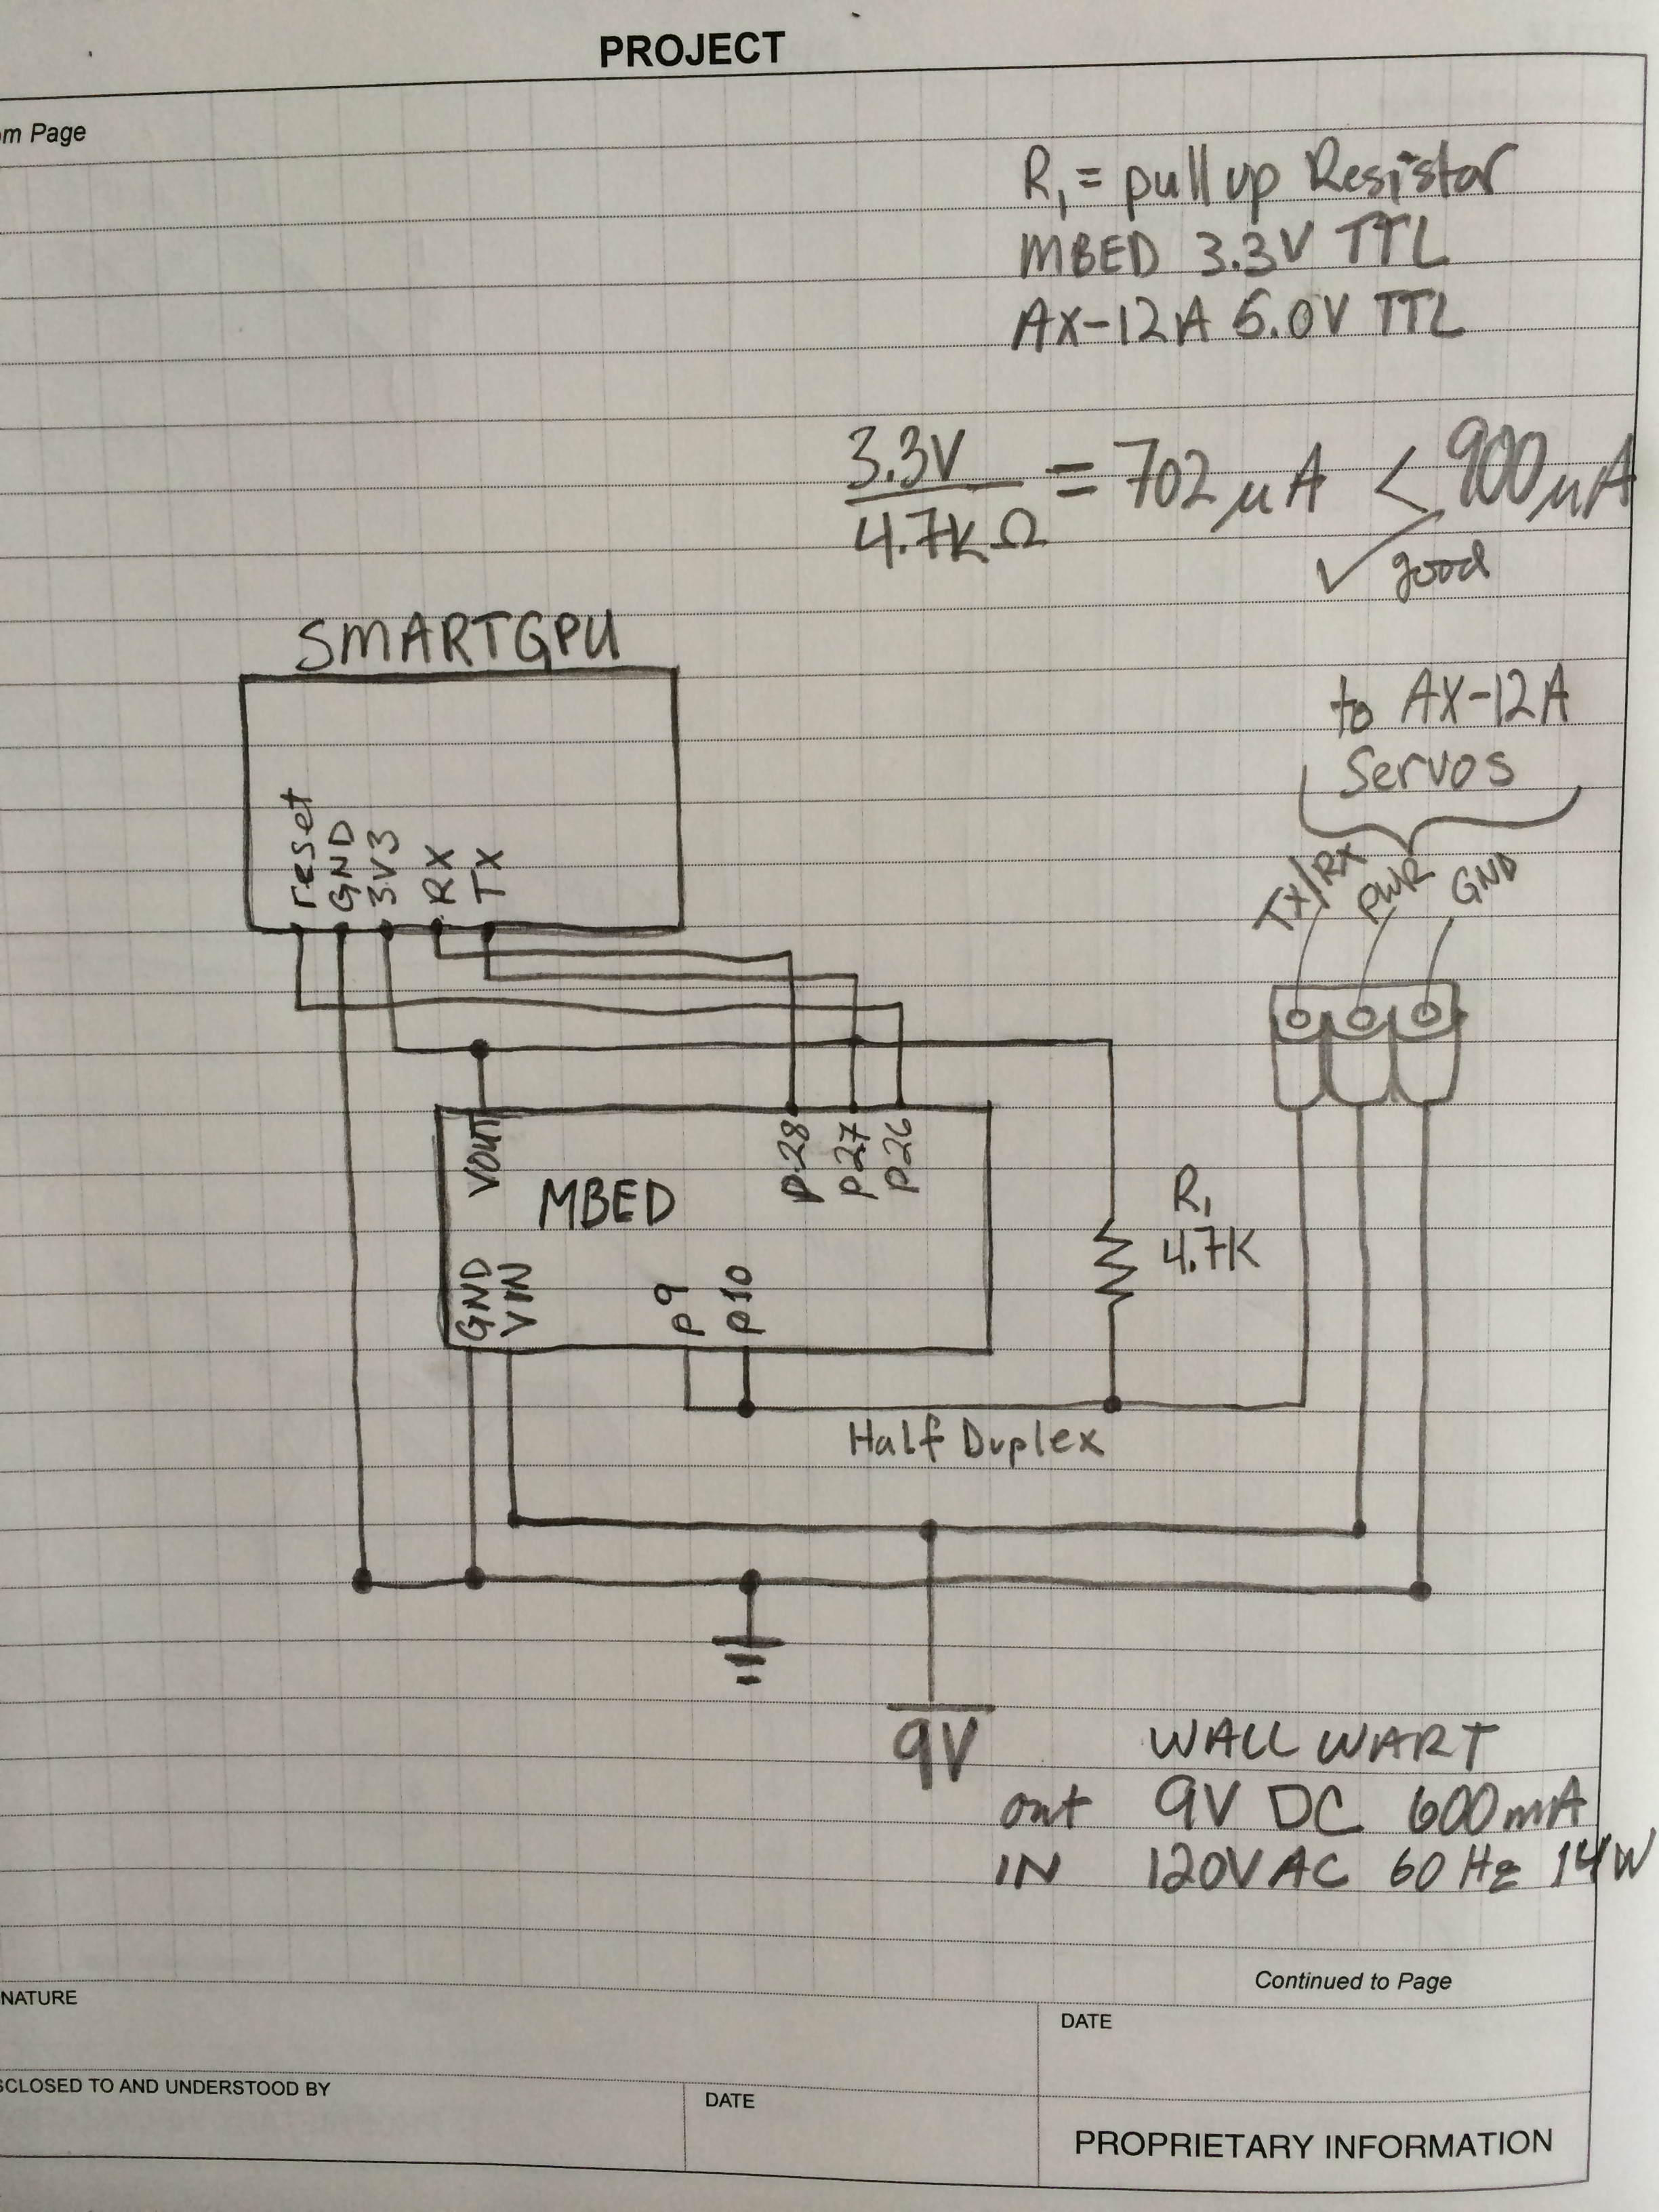 PROJECT
om Page
R1 = pull up Resistor
MBED 3.3V TTL
AX-12A 5.0V TTL
3.3V
4.7KΩ
= 702 μA < 900 μA
✓ good
SMARTGPU
reset
GND
3V3
RX
TX
to AX-12A
Servos
TX/RX
PWR
GND
VOUT
P28
P27
P26
MBED
GND
VIN
P9
P10
R1
4.7K
Half Duplex
9V
WALL WART
out 9V DC 600mA
IN 120V AC 60 Hz 14W
Continued to Page
NATURE
DATE
SCLOSED TO AND UNDERSTOOD BY
DATE
PROPRIETARY INFORMATION